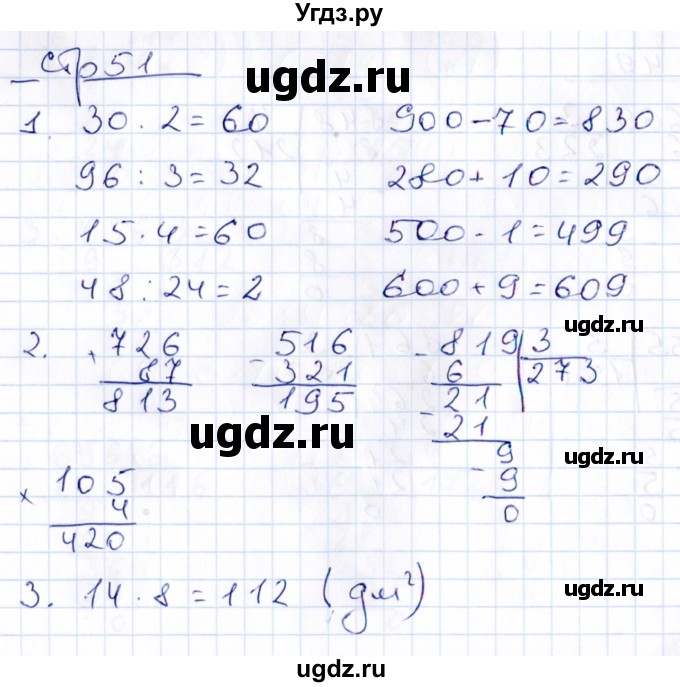 Угдз.ру
стр 51
ugdz.ru
1. 30 · 2 = 60
900 - 70 = 830
96 : 3 = 32
280 + 10 = 290
15 · 4 = 60
500 - 1 = 499
48 : 24 = 2
600 + 9 = 609
ugdz.ru
2. + 726
87
813
- 516
321
195
- 819 | 3
6 | 273
- 21
21
- 9
9
0
ugdz.ru
× 105
4
420
ugdz.ru
3. 14 · 8 = 112 (дм²)
ugdz.ru
ugdz.ru